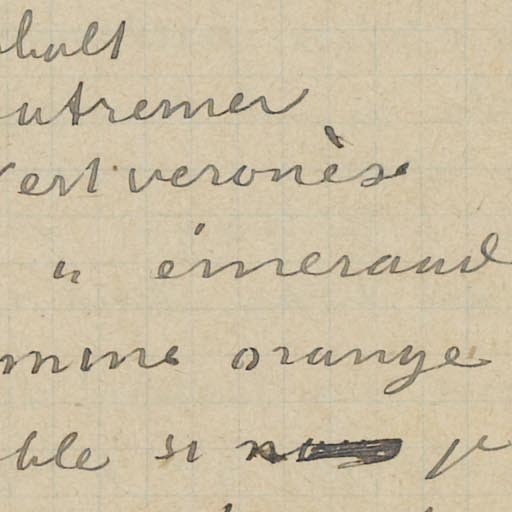 obalt
utremer
Vert veronèse
" émeraud
mine orange
ble si je